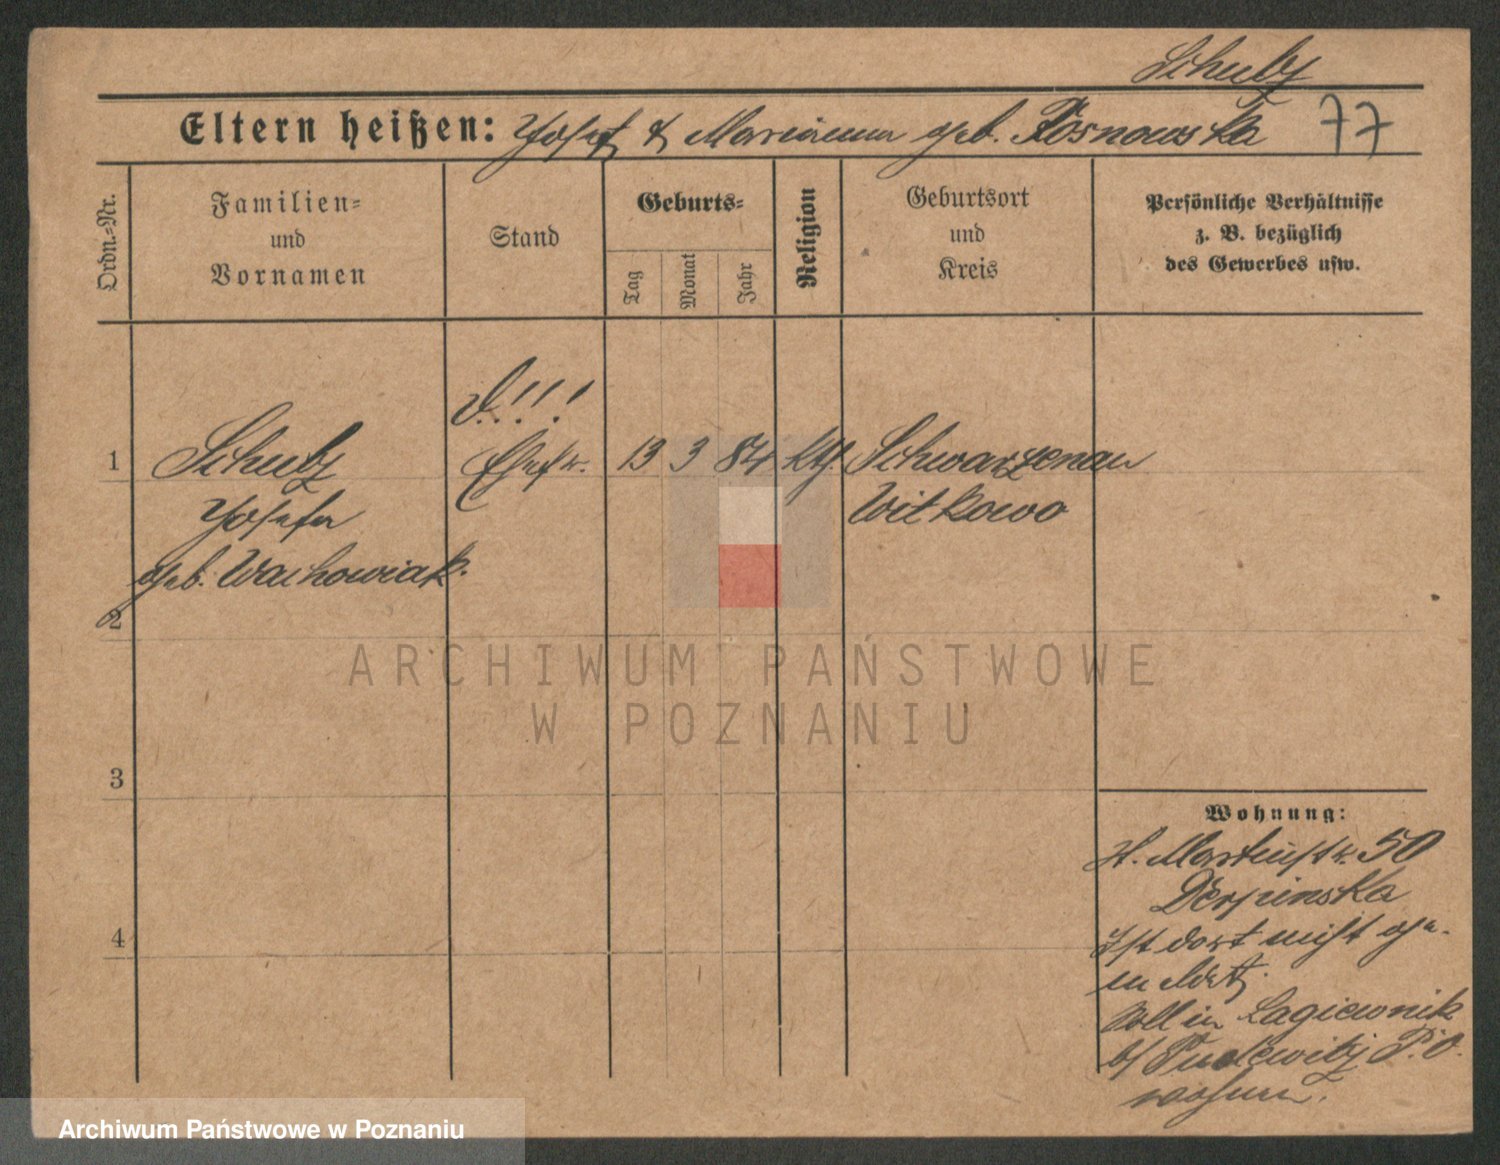 Schulz
Eltern heißen: Josef & Marianna geb. Kosnowska 77
Ordn.-Nr.
Familien-
und
Vornamen
Stand
Geburts-
Tag
Monat
Jahr
Religion
Geburtsort
und
Kreis
Persönliche Verhältnisse
z. B. bezüglich
des Gewerbes usw.
!!!
1 Schulz Ehefr. 13 3 84 kth. Schwarzenau
Josefa Witkowo
geb. Wachowiak.
2
ARCHIWUM PAŃSTWOWE
W POZNANIU
3
Wohnung:
St. Martinstr. 50
Ist dort nicht ge-
meldet.
Soll in Lagiewnik
b/ Pudewitz P. O.
wohnen.
4
Archiwum Państwowe w Poznaniu